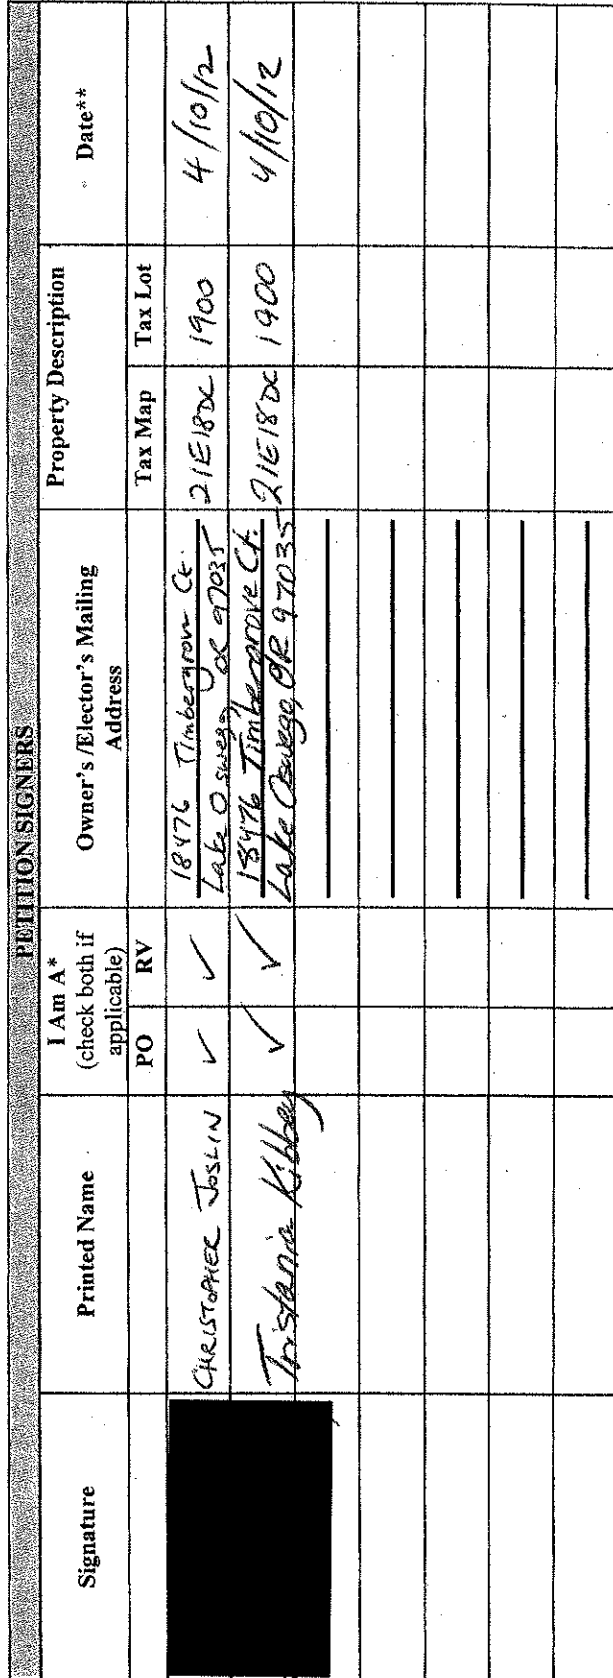 PETITION SIGNERS
Signature
Printed Name
I Am A*
(check both if
applicable)
PO
RV
Owner's /Elector's Mailing
Address
Property Description
Tax Map
Tax Lot
Date**
CHRISTOPHER JOSLIN
✓
✓
18476 Timbergrove Ct.
Lake Oswego, OR 97035
21E18DC
1900
4/10/12
Tristania Kibbey
✓
✓
18476 Timbergrove Ct.
Lake Oswego, OR 97035
21E18DC
1900
4/10/12